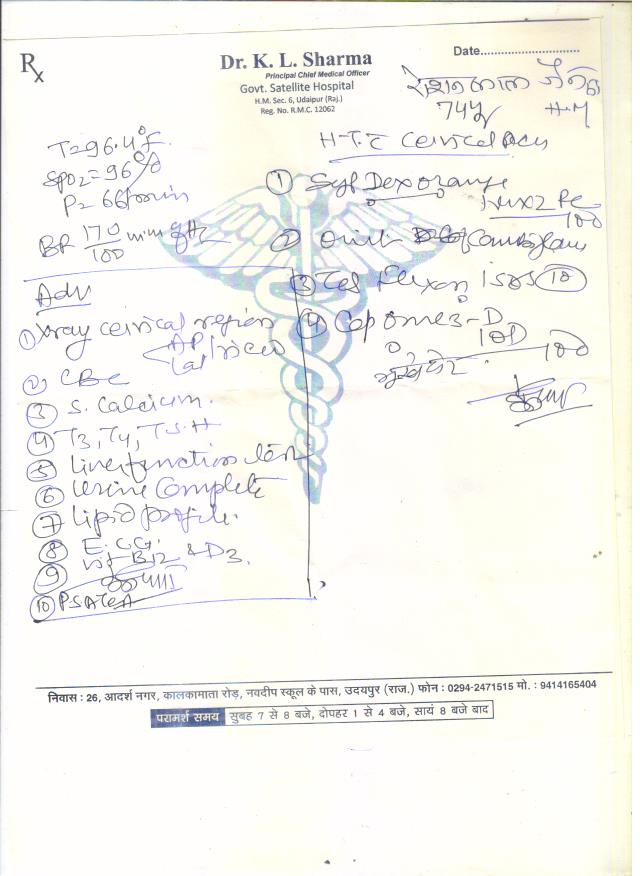 Rx
Dr. K. L. Sharma
Principal Chief Medical Officer
Govt. Satellite Hospital
H.M. Sec. 6, Udaipur (Raj.)
Reg. No. R.M.C. 12062
Date............................
रोशन लाल जैन
74y H.M
T=96.4°F
SPO2=96%
P=66/min
BP 170/100 mm of Hg
H.T. C cervical
① Syp Dexorange
100
②
③ 10
④ Cap Omez-D
10D
100
भूखे पेट
Adv
① Xray cervical region
AP/Lat view
② CBC
③ S. Calcium.
④ T3, T4, T.S.H
⑤ Liver function test
⑥ Urine Complete
⑦ Lipid profile.
⑧ E.C.G.
⑨ Vit B12 & D3.
⑩ PSA Test
निवास : 26, आदर्श नगर, कालकामाता रोड़, नवदीप स्कूल के पास, उदयपुर (राज.) फोन : 0294-2471515 मो. : 9414165404
परामर्श समय सुबह 7 से 8 बजे, दोपहर 1 से 4 बजे, सायं 8 बजे बाद